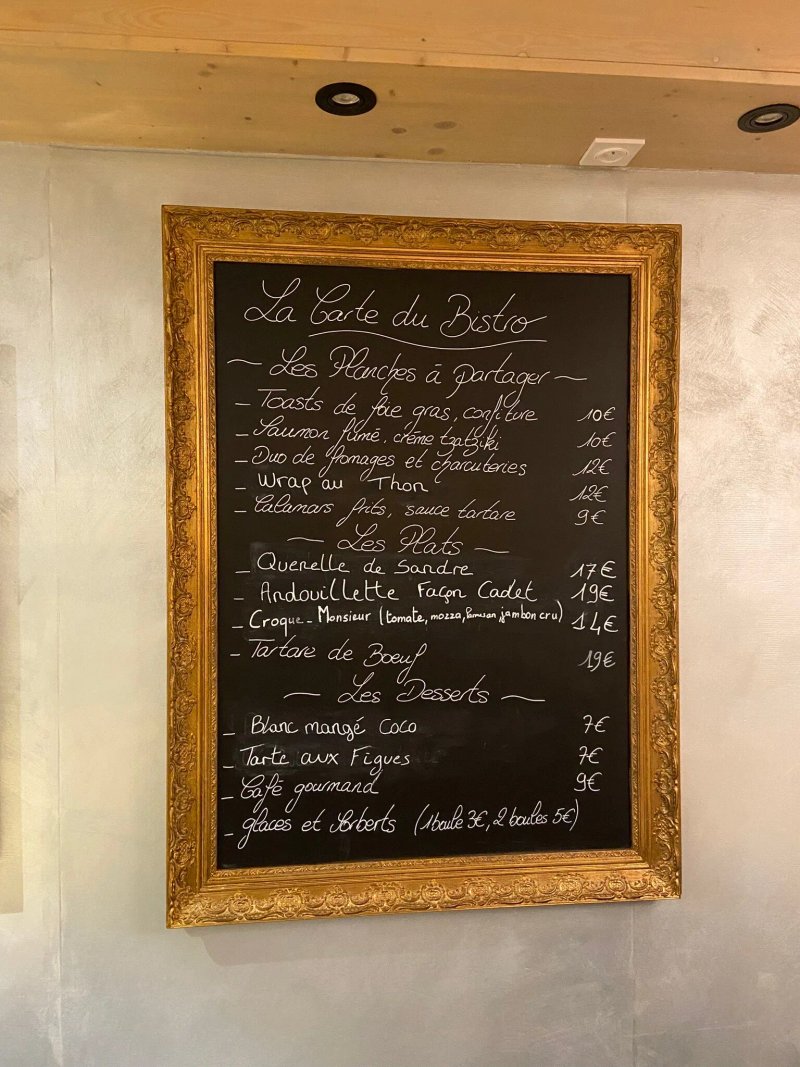 La Carte du Bistro
~ Les Planches à partager ~
- Toasts de foie gras, confiture 10€
- Saumon fumé, crème tzatziki 10€
- Duo de fromages et charcuteries 12€
- Wrap au Thon 12€
- Calamars frits, sauce tartare 9€
~ Les Plats ~
- Quenelle de Sandre 17€
- Andouillette Façon Cadet 19€
- Croque-Monsieur (tomate, mozza, Parmesan, jambon cru) 14€
- Tartare de Boeuf 19€
~ Les Desserts ~
- Blanc mangé Coco 7€
- Tarte aux Figues 7€
- Café gourmand 9€
- glaces et Sorberts (1 boule 3€, 2 boules 5€)